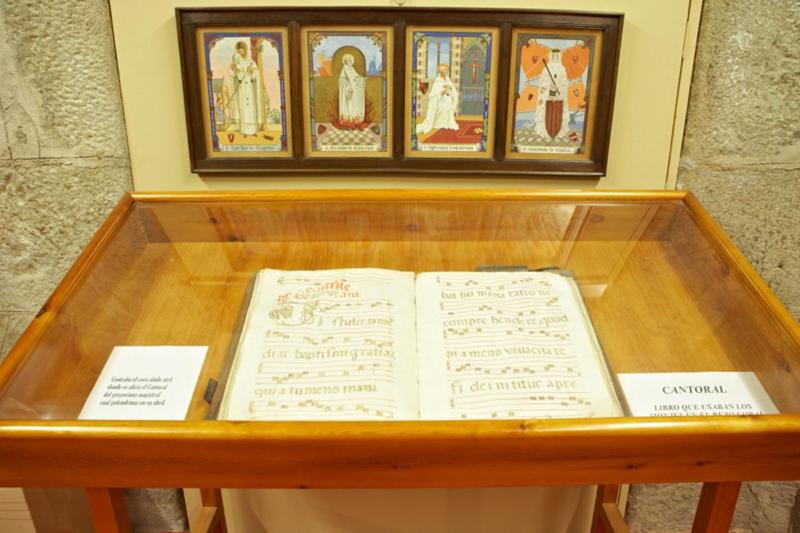 Centraba el coro alado atril
donde se abría el Cantoral
del gregoriano magistral
cual golondrinas en su abril.
stulit tamẽ
di u baptismi gratiaz
qui a tu mens mani
bat hu mana ratio ne
compre hen dere quod
pi a mens vivacita te
fi dei ni titur apre
CANTORAL
LIBRO QUE USABAN LOS
MONJES EN EL REZO CORAL